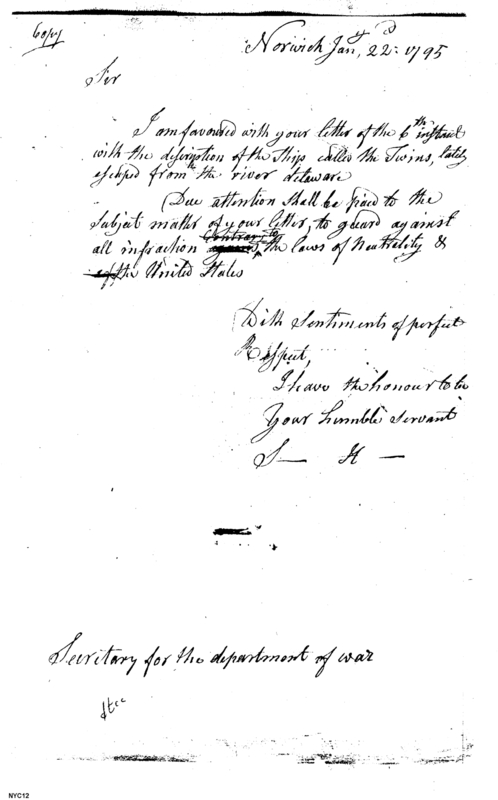 Copy
Norwich Jany 22d 1795
Sir
I am favoured with your letter of the 6th instant
with the discription of the Ship called the Twins, lately
escaped from the river delaware
Due attention Shall be paid to the
Subject matter of your letter, to guard against
contrary to
all infraction against the laws of Neutrality &
of the United States
With Sentiments of perfect
Respect,
I have the honour to be
Your humble Servant
S— H—
Secretary for the department of war
NYC12